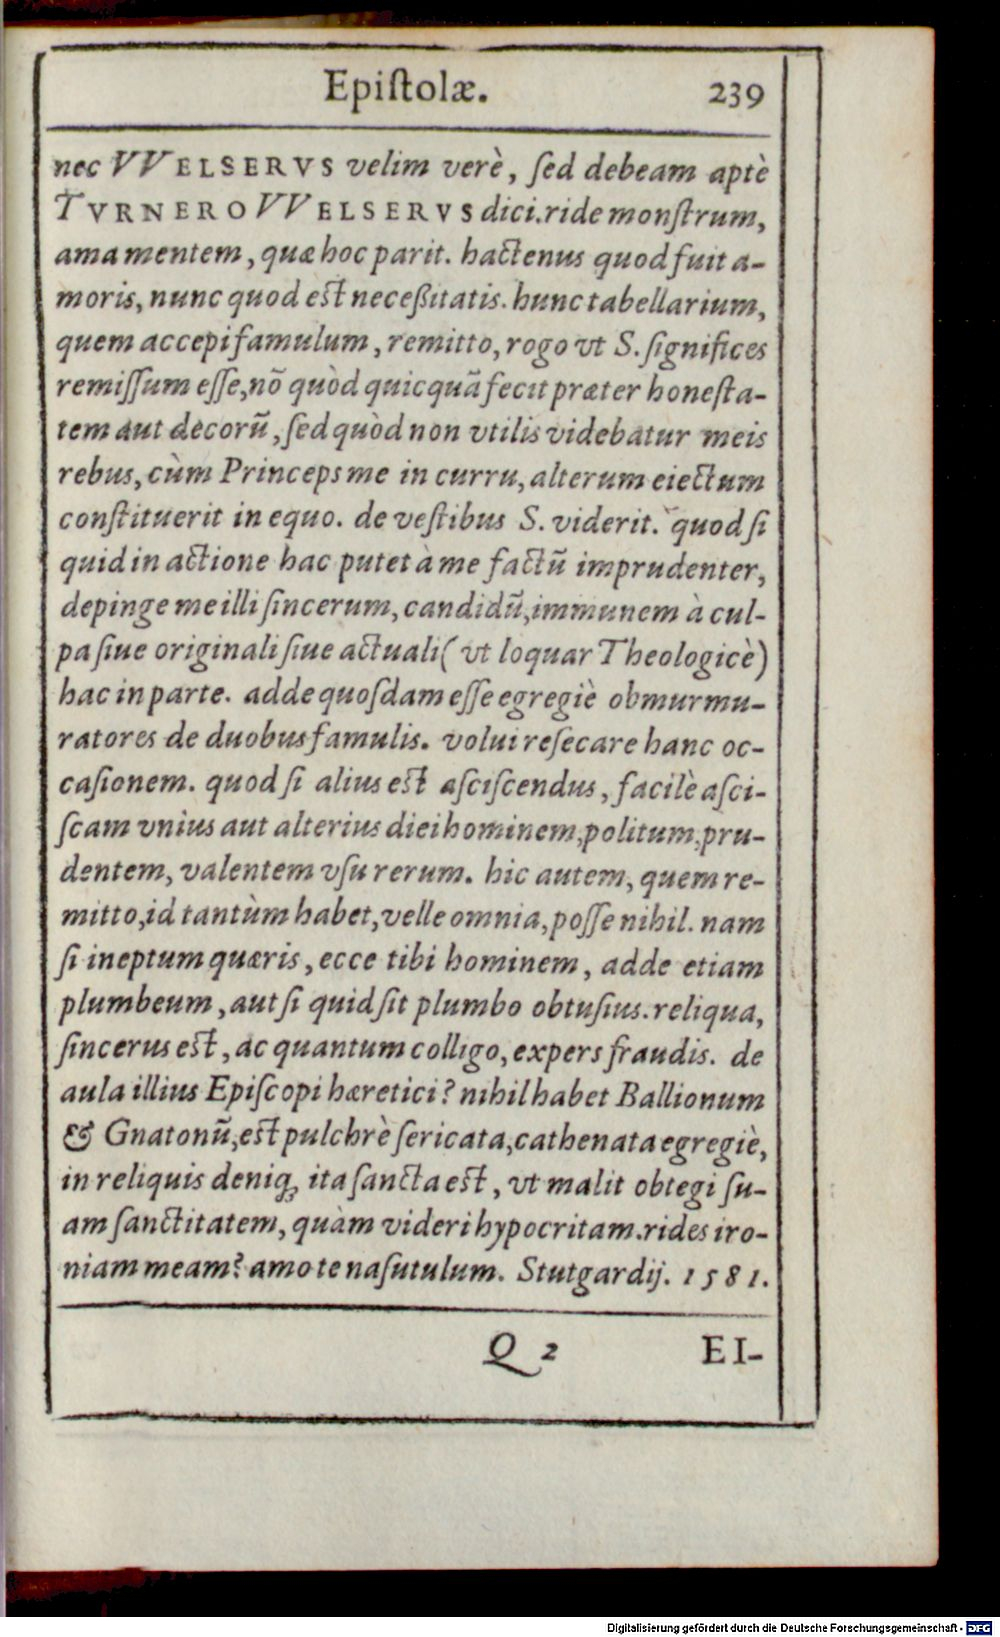 Epiſtolæ. 239
nec VVELSERVS velim verè, ſed debeam aptè
TVRNEROVVELSERVS dici. ride monſtrum,
ama mentem, quæ hoc parit. hactenus quod fuit a-
moris, nunc quod eſt neceßitatis. hunc tabellarium,
quem accepi famulum, remitto, rogo vt S. ſignifices
remiſſum eſſe, nõ quòd quicquã fecit præter honeſta-
tem aut decorũ, ſed quòd non vtilis videbatur meis
rebus, cùm Princeps me in curru, alterum eiectum
conſtituerit in equo. de veſtibus S. viderit. quod ſi
quid in actione hac putet à me factũ imprudenter,
depinge me illi ſincerum, candidũ, immunem à cul-
pa ſiue originali ſiue actuali (vt loquar Theologicè)
hac in parte. adde quoſdam eſſe egregiè obmurmu-
ratores de duobus famulis. volui reſecare hanc oc-
caſionem. quod ſi alius eſt aſciſcendus, facilè aſci-
ſcam vnius aut alterius diei hominem, politum, pru-
dentem, valentem vſu rerum. hic autem, quem re-
mitto, id tantùm habet, velle omnia, poſſe nihil. nam
ſi ineptum quæris, ecce tibi hominem, adde etiam
plumbeum, aut ſi quid ſit plumbo obtuſius. reliqua,
ſincerus eſt, ac quantum colligo, expers fraudis. de
aula illius Epiſcopi hæretici? nihil habet Ballionum
& Gnatonũ, eſt pulchrè ſericata, cathenata egregiè,
in reliquis deniq; ita ſancta eſt, vt malit obtegi ſu-
am ſanctitatem, quàm videri hypocritam. rides iro-
niam meam? amo te naſutulum. Stutgardij. 1581.
Q 2 EI-
Digitalisierung gefördert durch die Deutsche Forschungsgemeinschaft - DFG